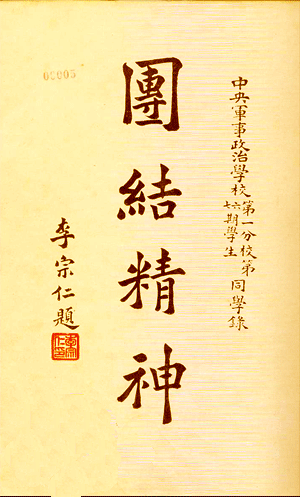 中央軍事政治學校第一分校第六七期學生同學錄
團結精神
李宗仁題
00005